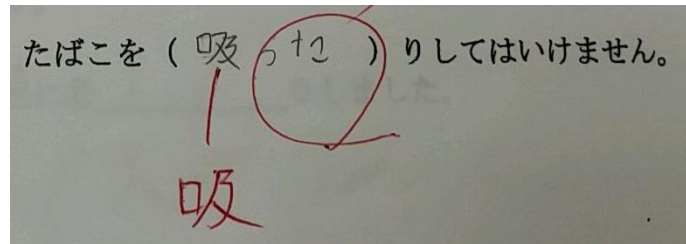 たばこを（吸った）りしてはいけません。
吸